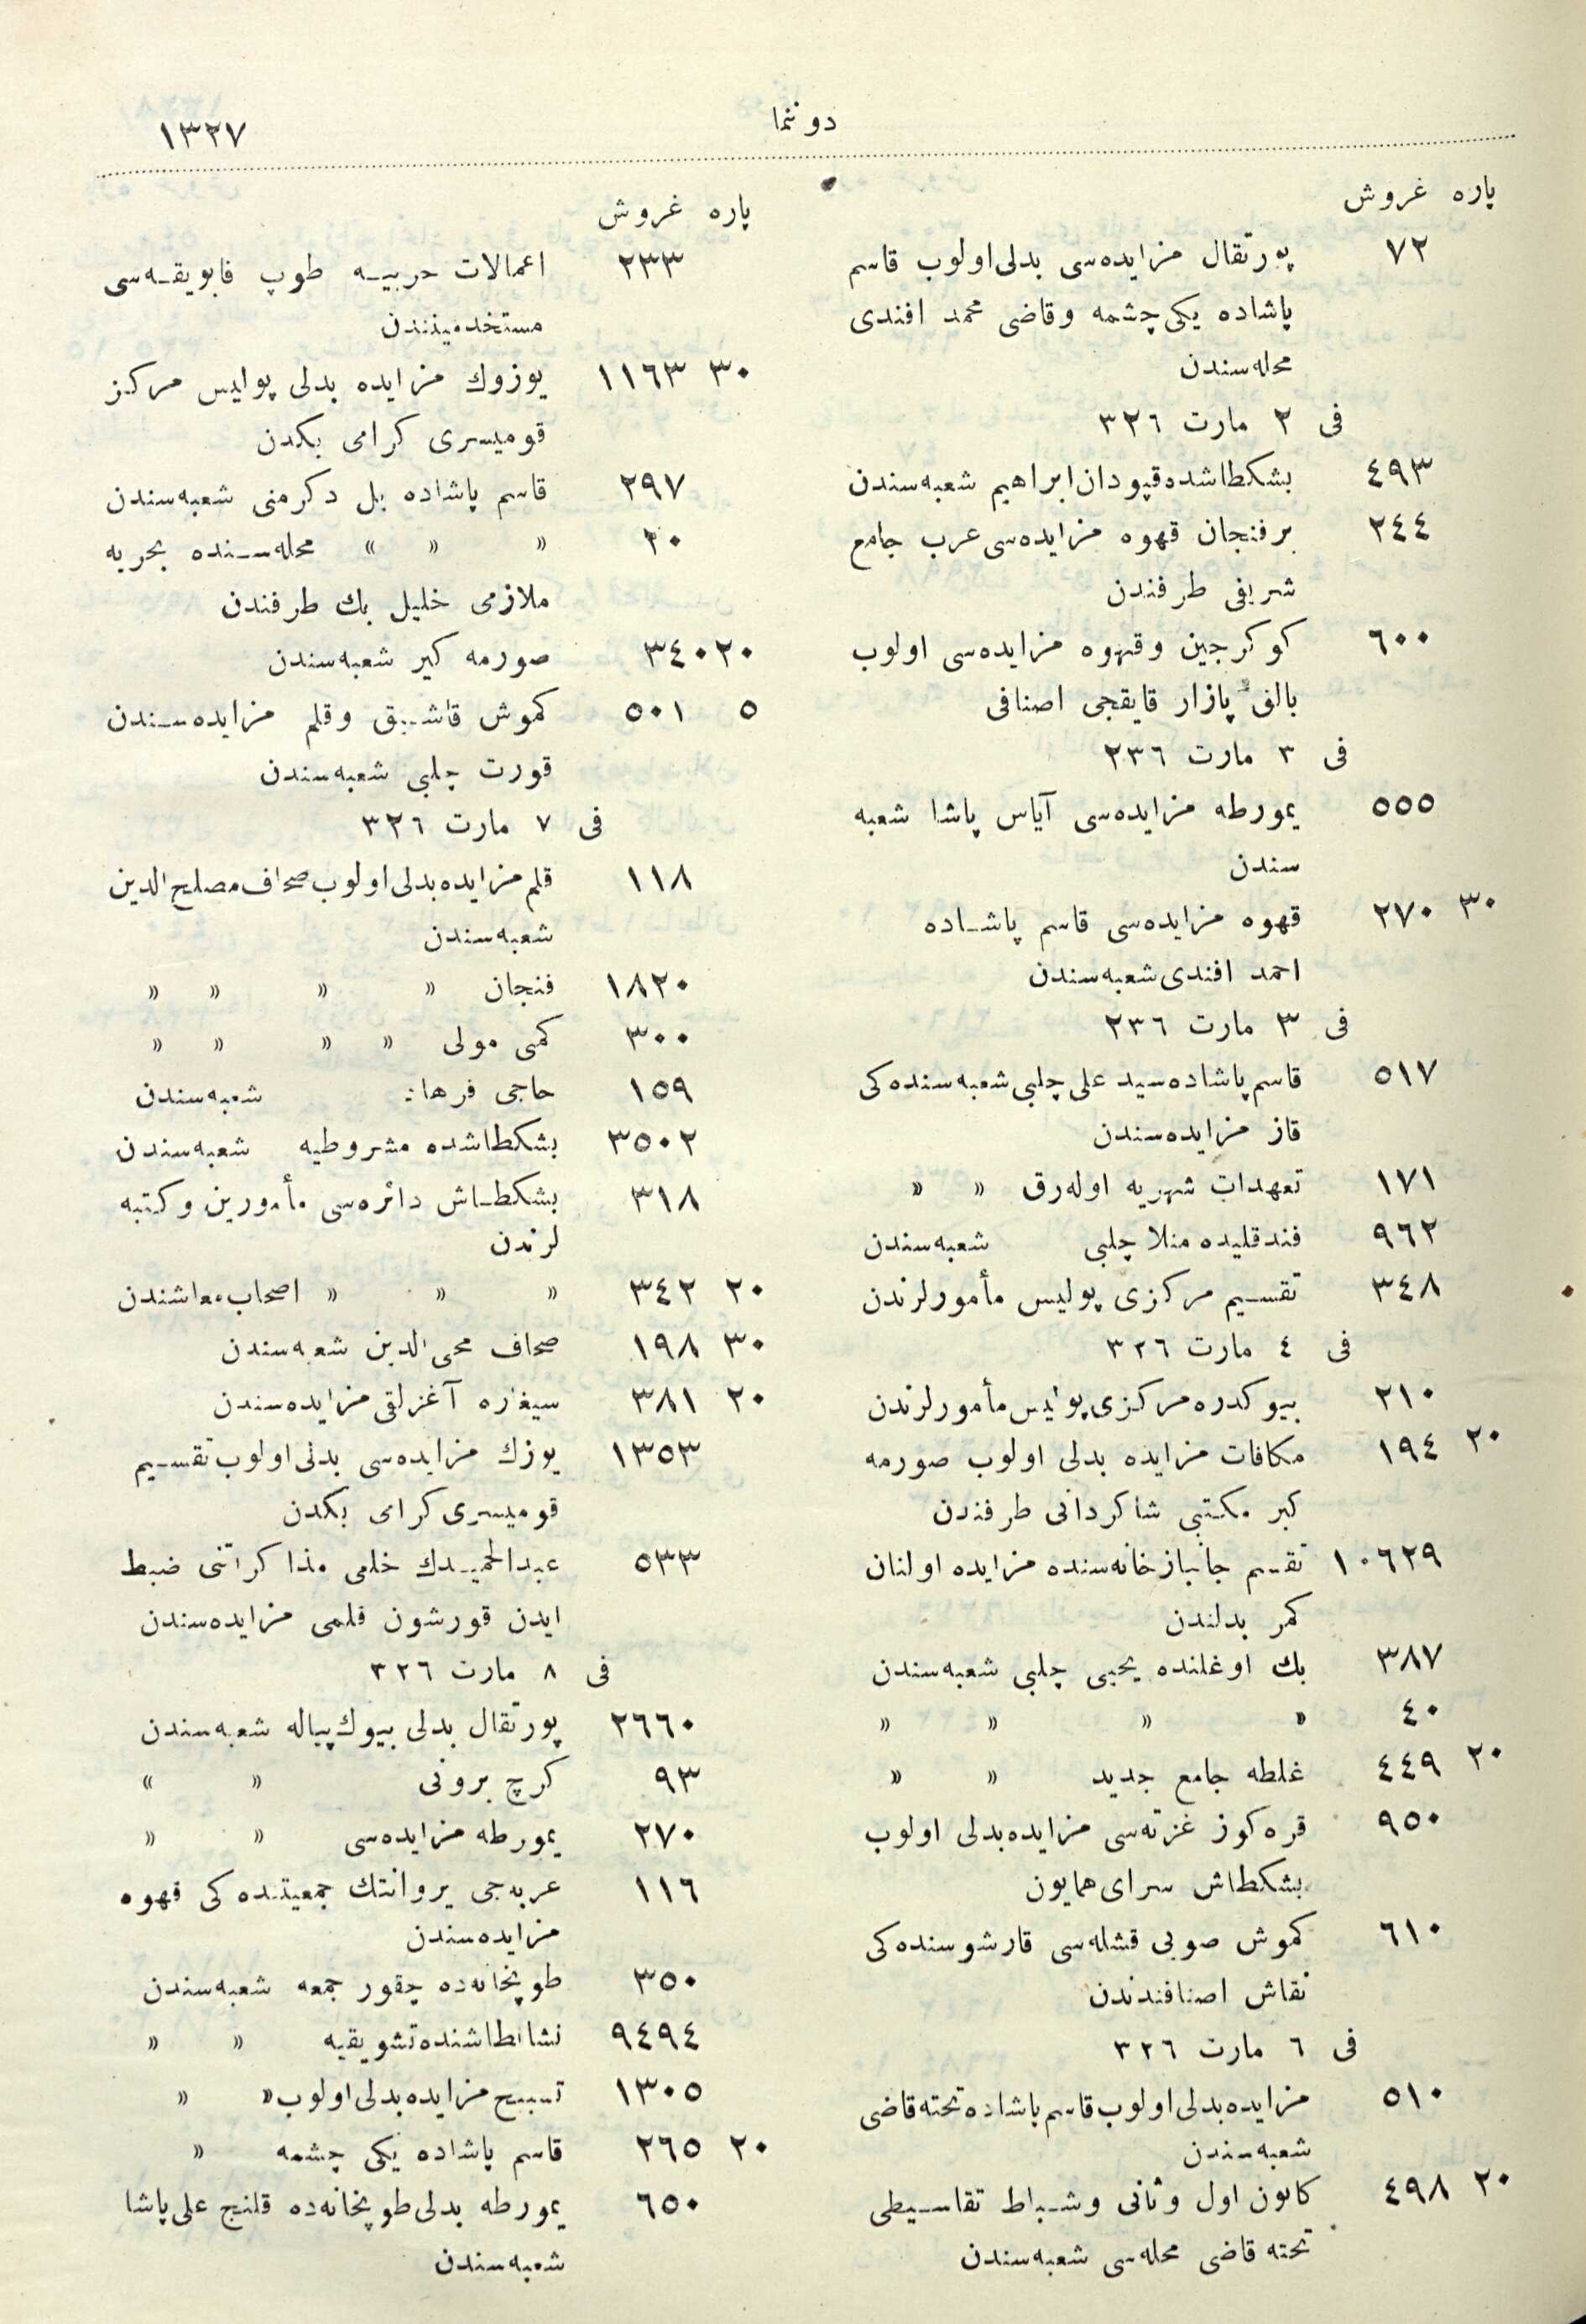 دوننما
١٣٢٧
پاره غروش
٧٢ پورتقال مزایده‌سی بدلی اولوب قاسم
پاشاده یکی چشمه وقاضی محمد افندی
محله‌سندن
فی ٢ مارت ٣٢٦
٤٩٣ بشکطاشده قپودان ابراهیم شعبه‌سندن
٢٤٤ بر فنجان قهوه مزایده‌سی عرب جامع
شریفی طرفندن
٦٠٠ کوکرجین وقهوه مزایده‌سی اولوب
بالق پازار قایقجی اصنافی
فی ٣ مارت ٢٣٦
٥٥٥ یمورطه مزایده‌سی آیاس پاشا شعبه
سندن
٣٠ ٢٧٠ قهوه مزایده‌سی قاسم پاشاده
احمد افندی شعبه‌سندن
فی ٣ مارت ٢٣٦
٥١٧ قاسم پاشاده سید علی چلبی شعبه‌سنده‌کی
قاز مزایده‌سندن
١٧١ تعهدات شهریه اوله‌رق » »
٩٦٢ فندقلیده منلا چلبی شعبه‌سندن
٣٤٨ تقسیم مرکزی پولیس مأمورلرندن
فی ٤ مارت ٣٢٦
٢١٠ بیوکدره مرکزی پولیس مأمورلرندن
٢٠ ١٩٤ مکافات مزایده بدلی اولوب صورمه
کیر مکتبی شاکردانی طرفندن
١٠٦٢٩ تقسیم جانبازخانه‌سنده مزایده اولنان
کمر بدلندن
٣٨٧ بك اوغلنده یحیی چلبی شعبه‌سندن
٤٠ » » » »
٢٠ ٤٤٩ غلطه جامع جدید » »
٩٥٠ قره‌کوز غزته‌سی مزایده بدلی اولوب
بشکطاش سرای همایون
٦١٠ کموش صویی قشله‌سی قارشوسنده‌کی
نقاش اصنافندندن
فی ٦ مارت ٣٢٦
٥١٠ مزایده بدلی اولوب قاسم پاشاده تخته قاضی
شعبه‌سندن
٢٠ ٤٩٨ کانون اول وثانی وشباط تقاسیطی
تخته قاضی محله‌سی شعبه‌سندن
پاره غروش
٢٣٣ اعمالات حربیه طوپ فابریقه‌سی
مستخدمیندن
٣٠ ١١٦٣ یوزوك مزایده بدلی پولیس مرکز
قومیسری کرامی بکدن
٢٩٧ قاسم پاشاده بل دکرمنی شعبه‌سندن
٢٠ » » » محله‌سنده بحریه
ملازمی خلیل بك طرفندن
٢٠ ٣٤٠ صورمه کیر شعبه‌سندن
٥ ٥٠١ کموش قاشیق وقلم مزایده‌سندن
قورت چلبی شعبه‌سندن
فی ٧ مارت ٣٢٦
١١٨ قلم مزایده بدلی اولوب صحاف مصلح الدین
شعبه‌سندن
١٨٢٠ فنجان » » » »
٣٠٠ کمی مولی » » » »
١٥٩ حاجی فرهاد شعبه‌سندن
٣٥٠٢ بشکطاشده مشروطیه شعبه‌سندن
٣١٨ بشکطاش دائره‌سی مأمورین وکتبه
لرندن
٢٠ ٣٤٢ » » » اصحاب معاشندن
٣٠ ١٩٨ صحاف محی الدین شعبه‌سندن
٢٠ ٣٨١ سیغاره آغزلقی مزایده‌سندن
١٣٥٣ یوزك مزایده‌سی بدلی اولوب تقسیم
قومیسری کرامی بکدن
٥٣٣ عبدالحمیدك خلعی مذاکراتنی ضبط
ایدن قورشون قلمی مزایده‌سندن
فی ٨ مارت ٣٢٦
٢٦٦٠ پورتقال بدلی بیوك پیاله شعبه‌سندن
٩٣ کرچ برونی » »
٢٧٠ یمورطه مزایده‌سی » »
١١٦ عربه‌جی یروانتك جمعیتنده‌کی قهوه
مزایده‌سندن
٣٥٠ طوپخانه‌ده چقور جمعه شعبه‌سندن
٩٤٩٤ نشانطاشنده تشویقیه » »
١٣٠٥ تسبیح مزایده بدلی اولوب » »
٢٠ ٢٦٥ قاسم پاشاده یکی چشمه »
٦٥٠ یمورطه بدلی طوپخانه‌ده قلنج علی پاشا
شعبه‌سندن